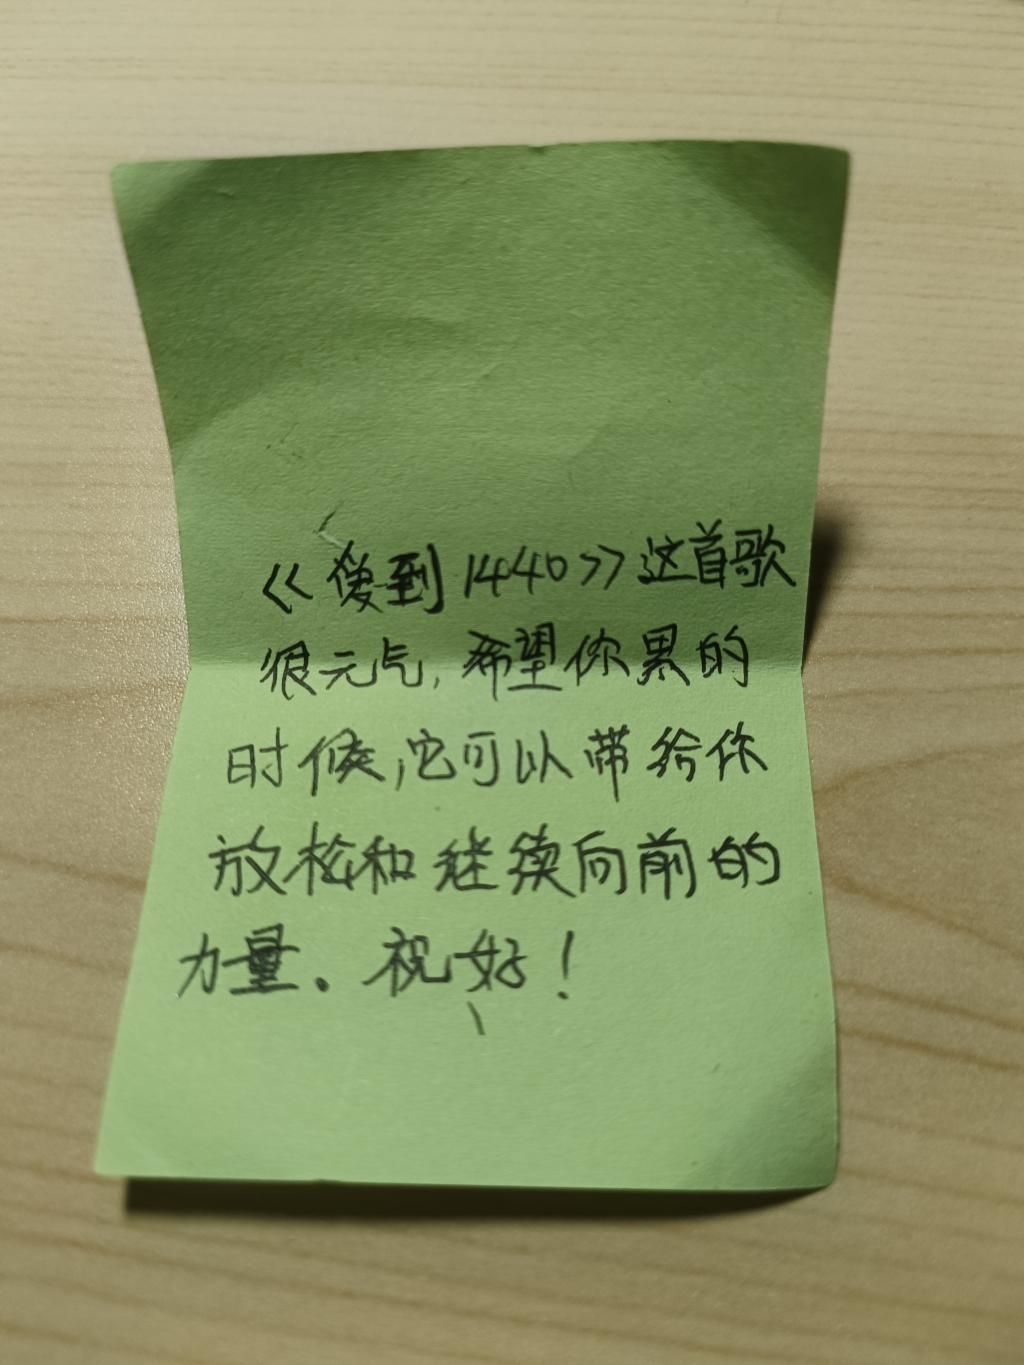 《到1440》这首歌
很元气，希望你累的
时候，它可以带给你
放松和继续向前的
力量。祝好！